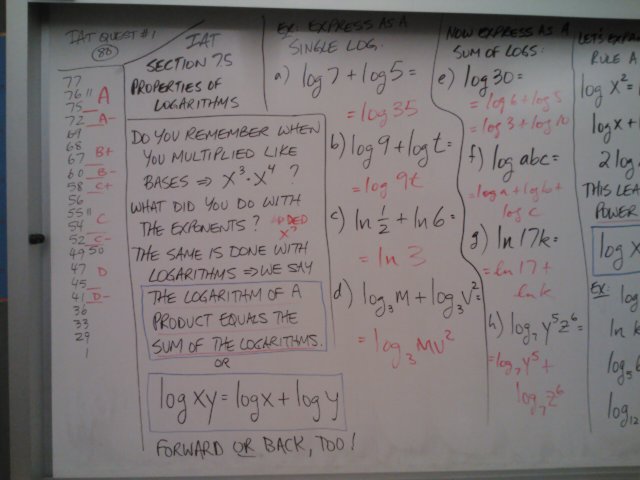 IAT QUEST #1
80
77
76 " A
75
72 A-
69
68
67 B+
60 B-
58 C+
56
55 " C
54
52 C-
49 50
47 D
45
41 D-
36
33
29
1
IAT
SECTION 75
PROPERTIES OF
LOGARITHMS
DO YOU REMEMBER WHEN
YOU MULTIPLIED LIKE
BASES ⇒ X³·X⁴ ?
WHAT DID YOU DO WITH
THE EXPONENTS? ADDED
X⁷
THE SAME IS DONE WITH
LOGARITHMS ⇒ WE SAY
THE LOGARITHM OF A
PRODUCT EQUALS THE
SUM OF THE LOGARITHMS.
OR
log xy = log x + log y
FORWARD OR BACK, TOO!
EX: EXPRESS AS A
SINGLE LOG.
a) log 7 + log 5 =
= log 35
b) log 9 + log t =
= log 9t
c) ln ½ + ln 6 =
= ln 3
d) log₃ M + log₃ V² =
= log₃ MV²
NOW EXPRESS AS A
SUM OF LOGS:
e) log 30 =
= log 6 + log 5
= log 3 + log 10
f) log abc =
= log a + log b +
log c
g) ln 17k =
= ln 17 +
ln k
h) log₇ y⁵z⁶
= log₇ y⁵ +
log₇ z⁶
LET'S EXP
RULE A
log x² =
log x +
2 log
THIS LEA
POWER
log x
EX:
log
ln k
log₅ 6
log₁₂